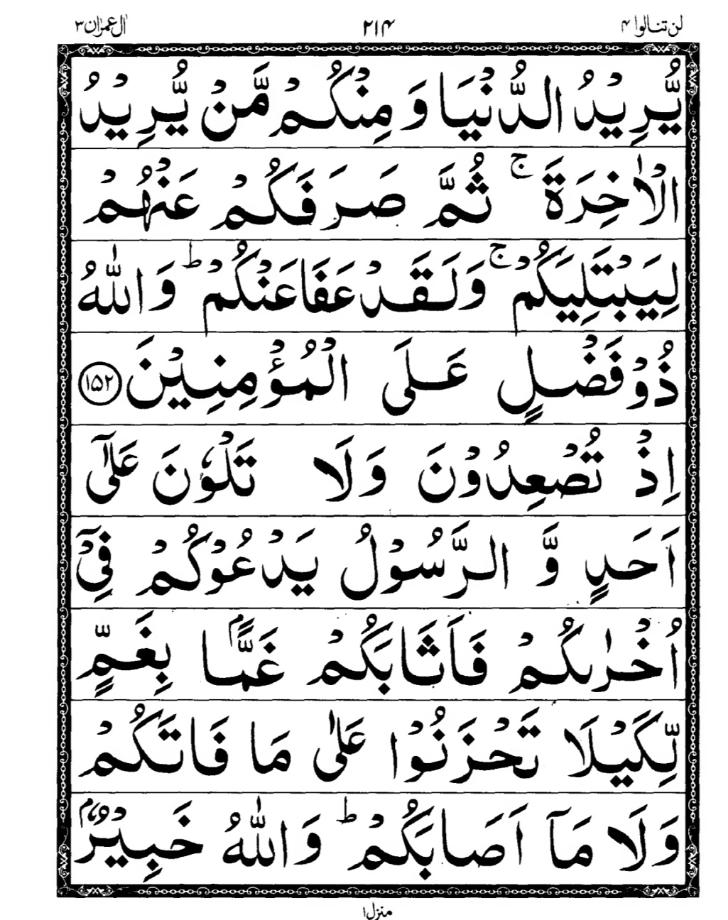 لن تنالوا ۴ ۲۱۴ اٰل عمرٰن ۳
یُّرِیْدُ الدُّنْیَا وَ مِنْكُمْ مَّنْ یُّرِیْدُ
الْاٰخِرَةَ ۚ ثُمَّ صَرَفَكُمْ عَنْهُمْ
لِیَبْتَلِیَكُمْ ۚ وَلَقَدْ عَفَا عَنْكُمْ ؕ وَاللّٰهُ
ذُوْ فَضْلٍ عَلَی الْمُؤْمِنِیْنَ ۝۱۵۲
اِذْ تُصْعِدُوْنَ وَلَا تَلْوٗنَ عَلٰۤی
اَحَدٍ وَّ الرَّسُوْلُ یَدْعُوْكُمْ فِیْۤ
اُخْرٰىكُمْ فَاَثَابَكُمْ غَمًّۢا بِغَمٍّ
لِّكَیْلَا تَحْزَنُوْا عَلٰی مَا فَاتَكُمْ
وَلَا مَاۤ اَصَابَكُمْ ؕ وَاللّٰهُ خَبِیْرٌۢ
منزل۱